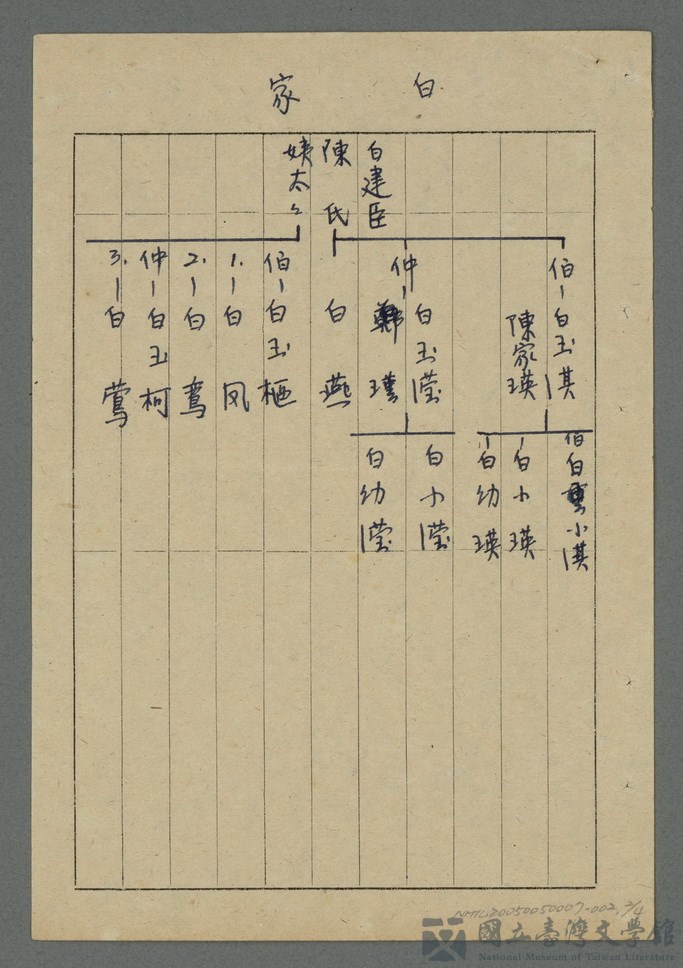 白家
白建臣
陳氏
姨太々
伯-白玉淇
陳家瑛
仲-白玉瀅
鄭瓊
白燕
伯-白玉樞
1.-白凤
2.-白鸞
仲-白玉柯
3.-白鶯
伯白小淇
白小瑛
白幼瑛
白小瀅
白幼瀅
NMTL20050050007-002, 2/4
國立臺灣文學館
National Museum of Taiwan Literature